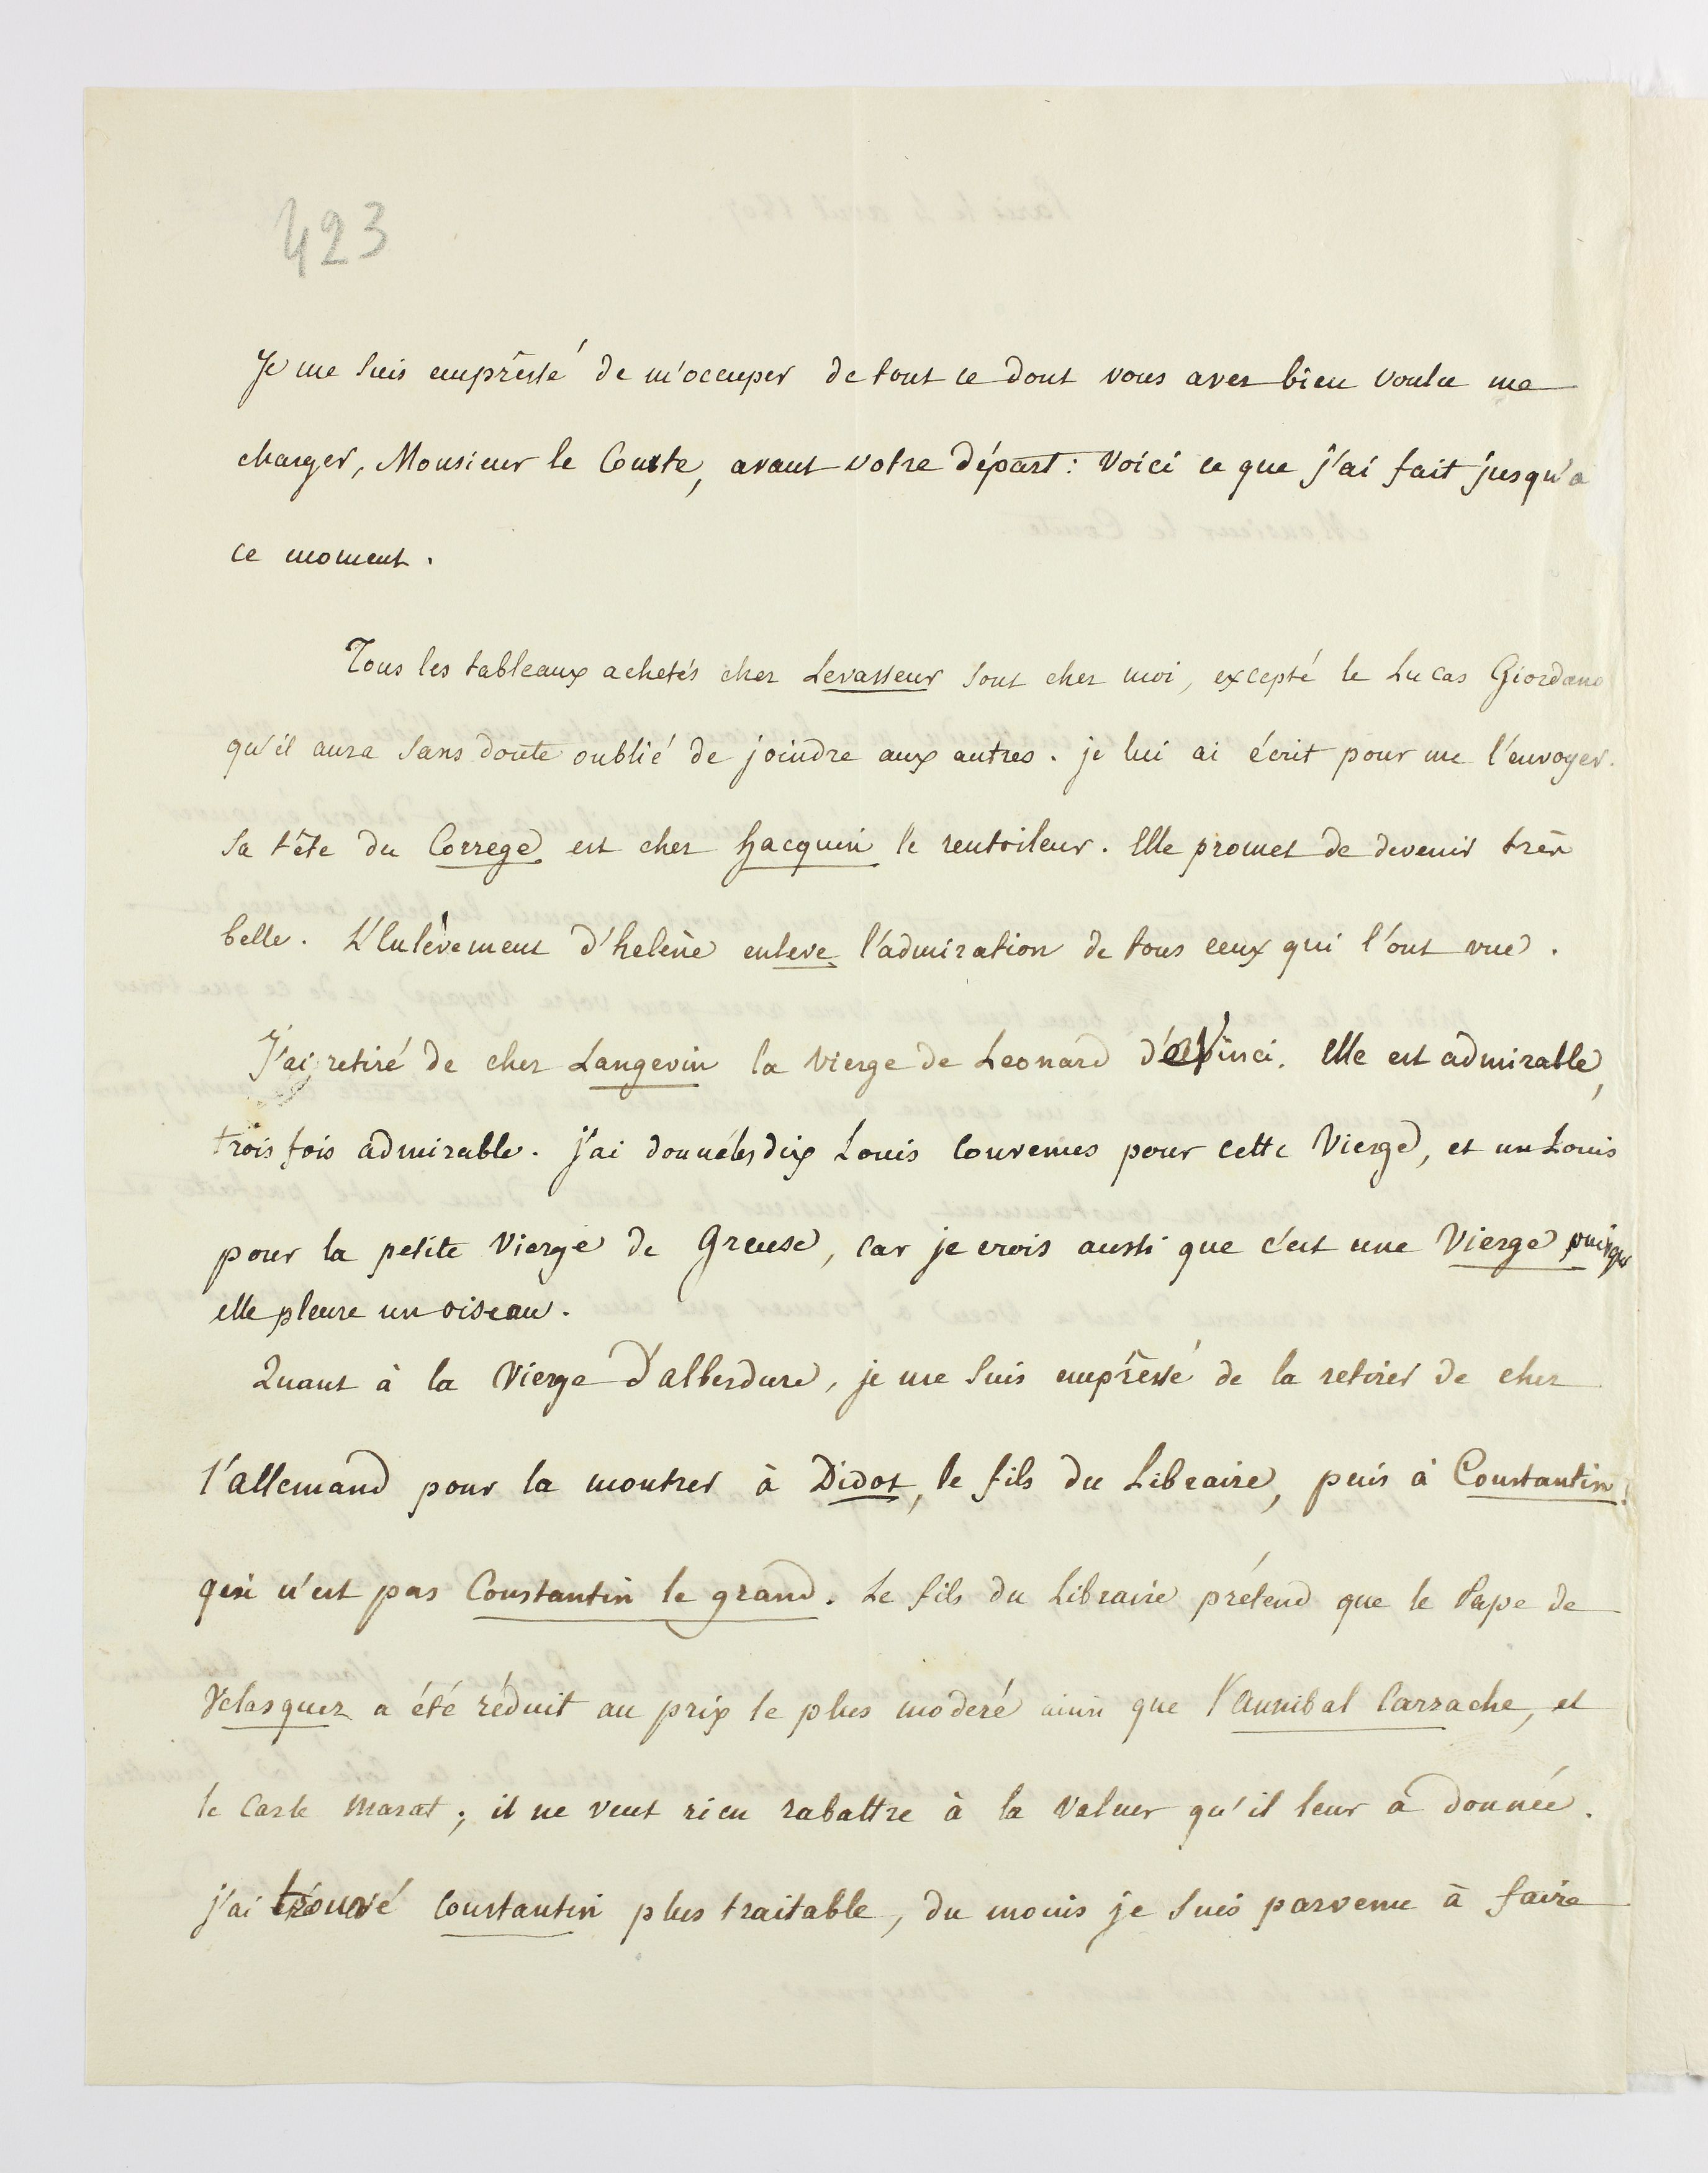 423
Je me suis empressé de m'occuper de tout ce dont vous avez bien voulu me
charger, Monsieur le Comte, avant votre départ : Voici ce que j'ai fait jusqu'a
ce moment.
Tous les tableaux achetés chez Levasseur sont chez moi, excepté le Lucas Giordano
qu'il aura sans doute oublié de joindre aux autres. je lui ai écrit pour me l'envoyer.
Sa tête du Correge est chez hacquin le rentoileur. Elle promet de devenir très
belle. L'Enlèvement d'helène enleve l'admiration de tous ceux qui l'ont vue.
J'ai retiré de chez Langevin la Vierge de Leonard de Vinci. Elle est admirable,
trois fois admirable. j'ai donné les dix Louis convenus pour cette Vierge, et un Louis
pour la petite Vierge de Greuse, car je crois aussi que c'est une Vierge puisque
elle pleure un oiseau.
Quant à la Vierge d'alberdure, je me suis empressé de la retirer de chez
l'allemand pour la montrer à Didot, le fils du Libraire, puis à Constantin
qui n'est pas Constantin le grand. Le fils du Libraire prétend que le Pape de
Velasquez a été réduit au prix le plus moderé ainsi que l'Annibal Carrache, et
le Carle Marat ; il ne veut rien rabattre à la valeur qu'il leur a donnée.
j'ai trouvé Constantin plus traitable, du moins je suis parvenu à faire